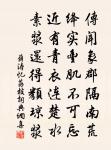 傳聞象郡隔南荒
絳實豐肌不可忘
近有青衣連楚水
素漿還得類瓊漿
薛濤憶荔枝詞典網